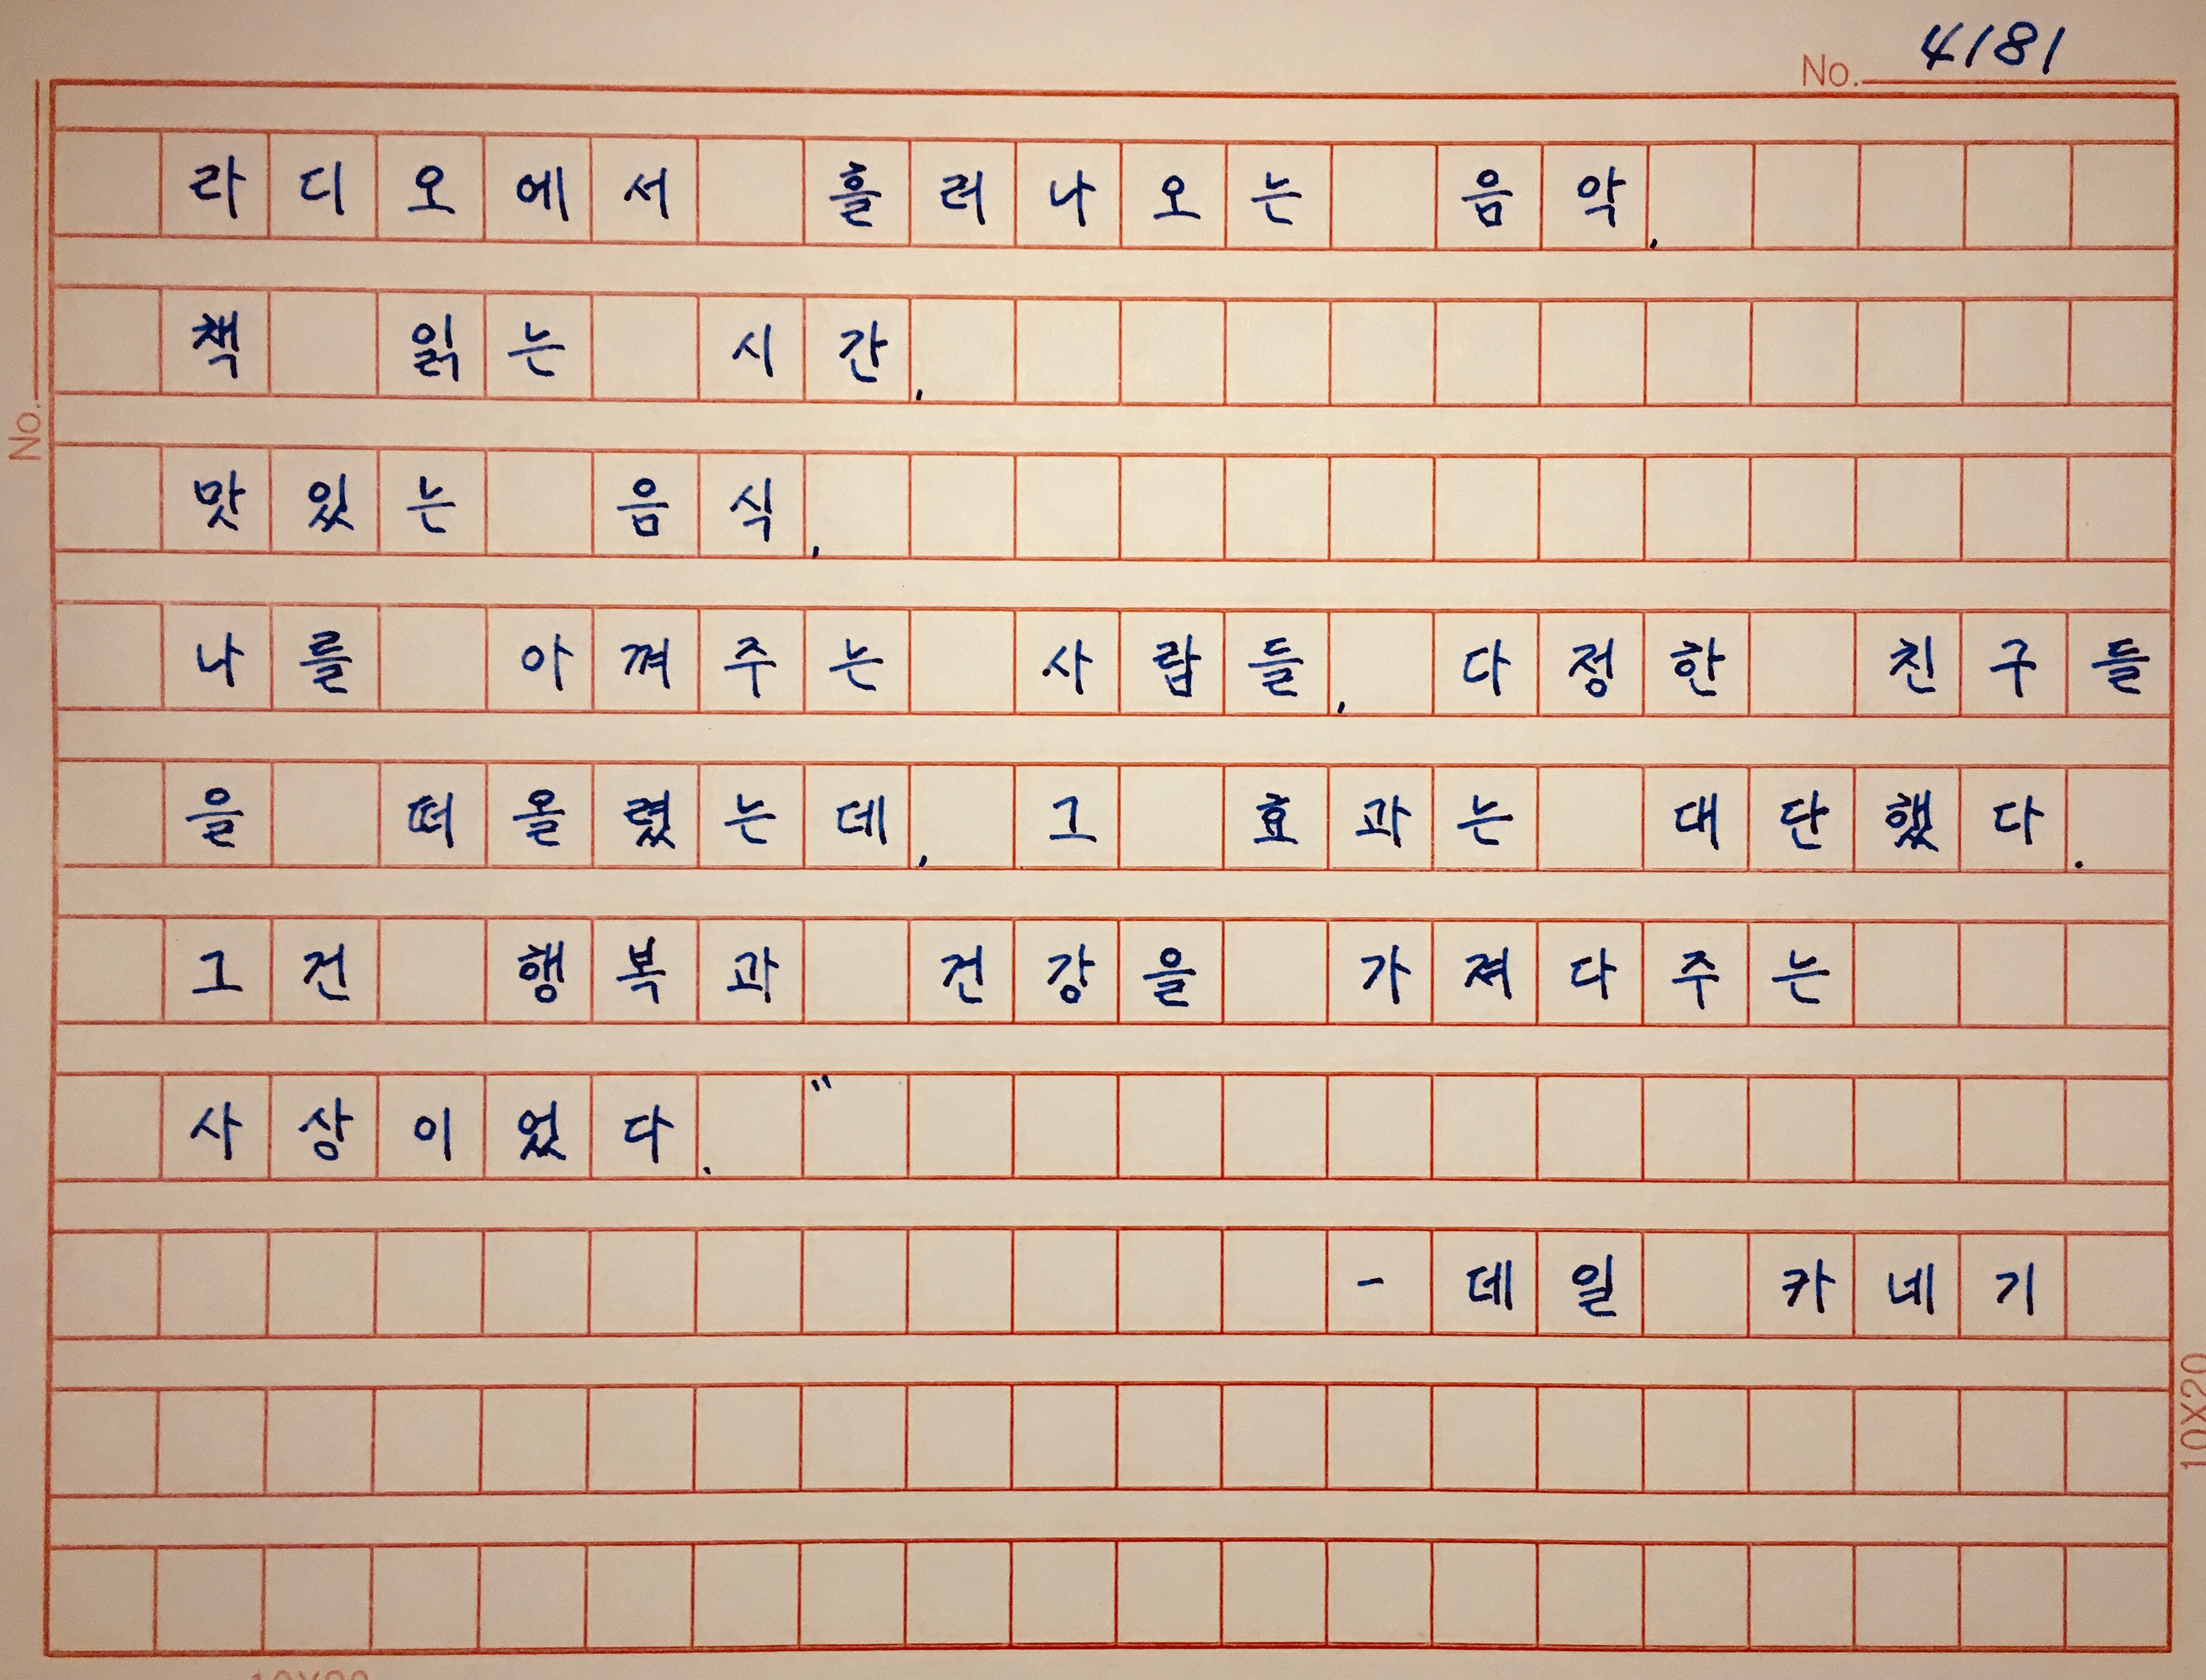 No. 4181
라디오에서 흘러나오는 음악,
책 읽는 시간,
맛있는 음식,
나를 아껴주는 사람들, 다정한 친구들
을 떠올렸는데, 그 효과는 대단했다.
그건 행복과 건강을 가져다주는
사상이었다."
- 데일 카네기
No.
10X20